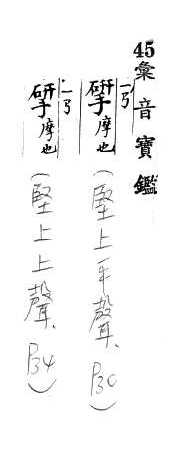 45彙音寶鑑
揅 摩也
(堅上平聲、P30)
揅 摩也
(堅上上聲、P34)